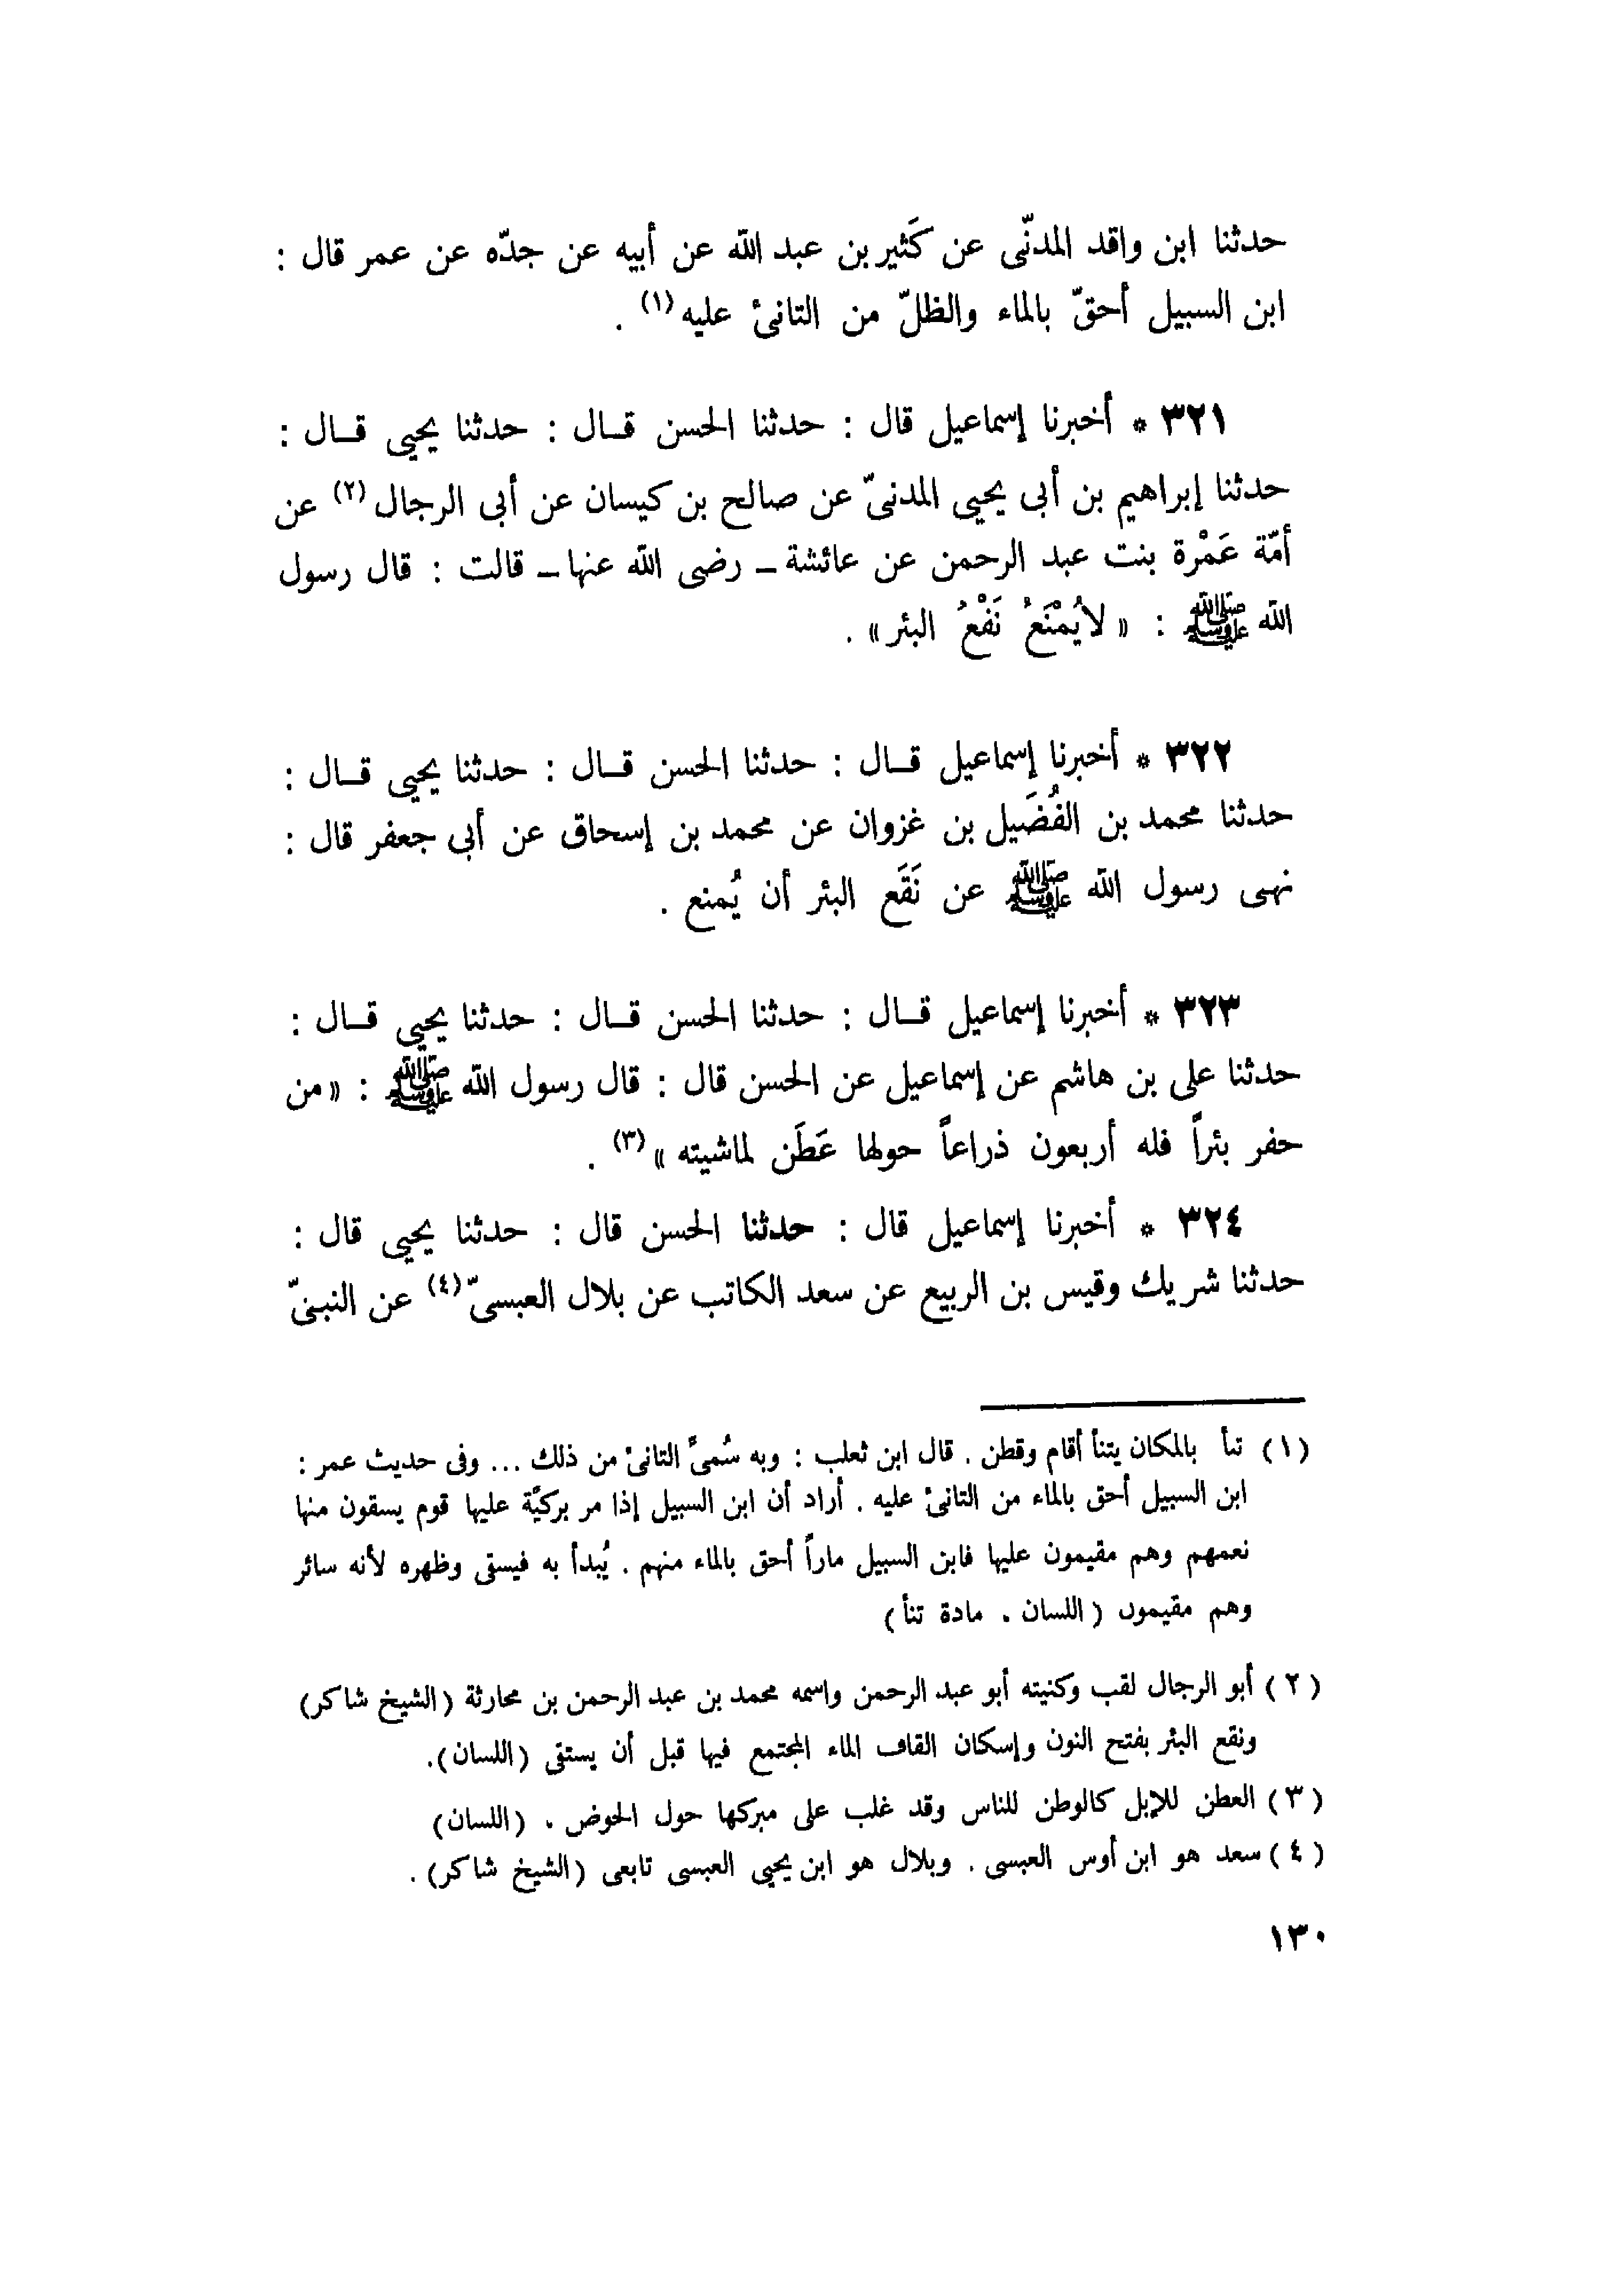 حدثنا ابن واقد المدنّى عن كَثير بن عبد الله عن أبيه عن جدّه عن عمر قال :
ابن السبيل أحقّ بالماء والظلّ من التانئ عليه (١) .
٣٢١ * أخبرنا إسماعيل قال : حدثنا الحسن قـال : حدثنا يحيى قـال :
حدثنا إبراهيم بن أبى يحيى المدنىّ عن صالح بن كيسان عن أبى الرجال (٢) عن
أمّة عَمْرة بنت عبد الرحمن عن عائشة ــ رضى الله عنها ــ قالت : قال رسول
الله ﷺ : « لايُمْنَعُ نَفْعُ البئر » .
٣٢٢ * أخبرنا إسماعيل قـال : حدثنا الحسن قـال : حدثنا يحيى قـال :
حدثنا محمد بن الفُضَيل بن غزوان عن محمد بن إسحاق عن أبى جعفر قال :
نهى رسول الله ﷺ عن نَقَع البئر أن يُمنع .
٣٢٣ * أخبرنا إسماعيل قـال : حدثنا الحسن قـال : حدثنا يحيى قـال :
حدثنا على بن هاشم عن إسماعيل عن الحسن قال : قال رسول الله ﷺ : « من
حفر بئراً فله أربعون ذراعاً حولها عَطَن لماشيته » (٣) .
٣٢٤ * أخبرنا إسماعيل قال : حدثنا الحسن قال : حدثنا يحيى قال :
حدثنا شريك وقيس بن الربيع عن سعد الكاتب عن بلال العبسىّ (٤) عن النبىّ
(١) تنأ بالمكان يتنأ أقام وقطن . قال ابن ثعلب : وبه سُمىّ التانئ من ذلك ... وفى حديث عمر :
ابن السبيل أحق بالماء من التانئ عليه . أراد أن ابن السبيل إذا مر بركيّة عليها قوم يسقون منها
نعمهم وهم مقيمون عليها فابن السبيل ماراً أحق بالماء منهم . يُبدأ به فيسقى وظهره لأنه سائر
وهم مقيمون (اللسان . مادة تنأ)
(٢) أبو الرجال لقب وكنيته أبو عبد الرحمن واسمه محمد بن عبد الرحمن بن محارثة (الشيخ شاكر)
ونقع البئر بفتح النون وإسكان القاف الماء المجتمع فيها قبل أن يستقى (اللسان).
(٣) العطن للإبل كالوطن للناس وقد غلب على مبركها حول الحوض . (اللسان)
(٤) سعد هو ابن أوس العبسى . وبلال هو ابن يحيى العبسى تابعى (الشيخ شاكر) .
١٣٠